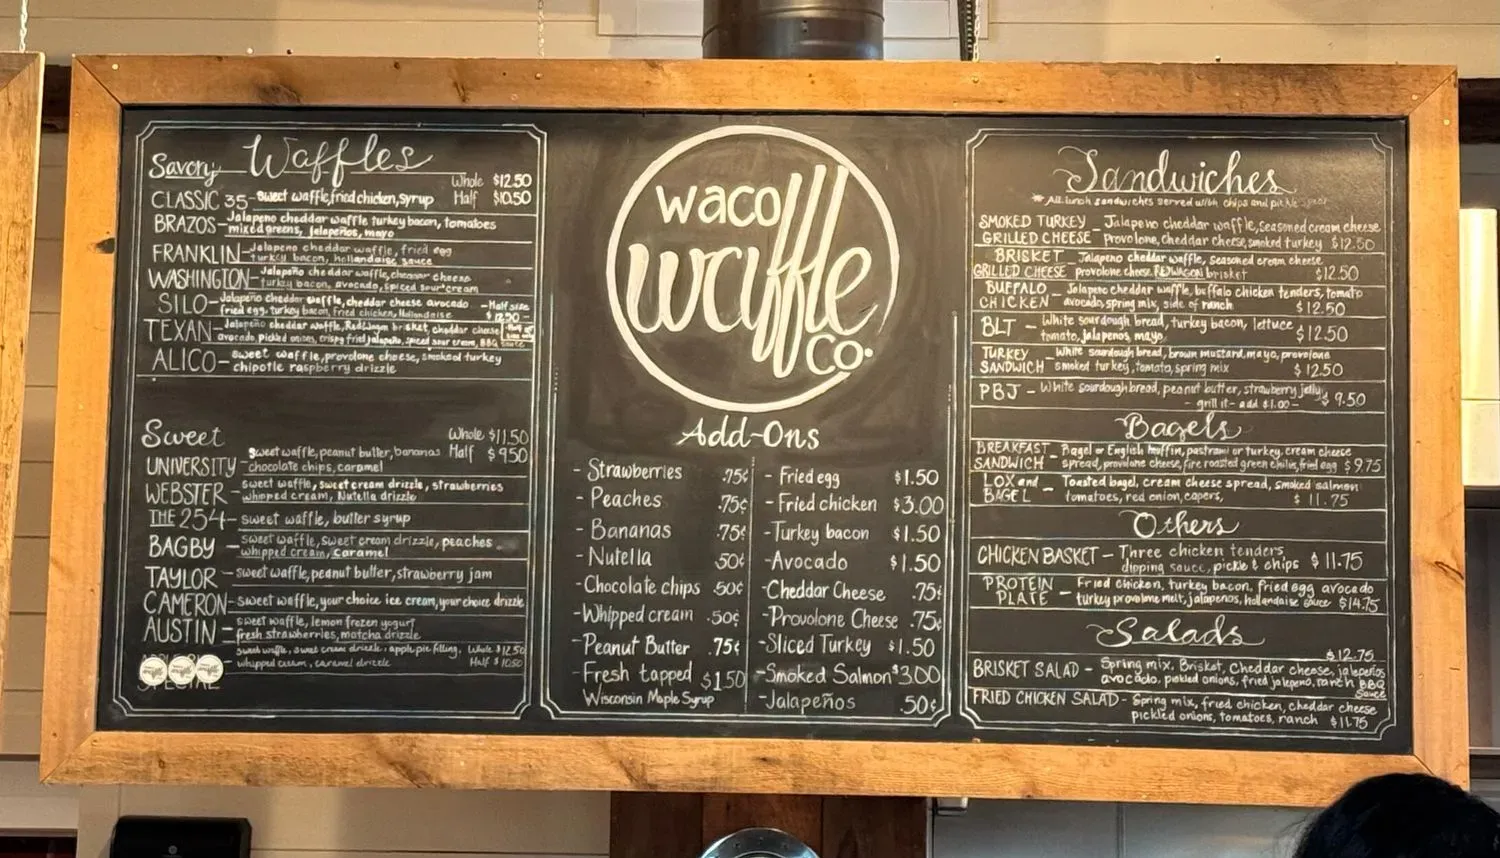 Waffles
Savory
Whole $12.50
CLASSIC 35 - sweet waffle, fried chicken, syrup Half $10.50
BRAZOS - Jalapeno cheddar waffle turkey bacon, tomatoes
mixed greens, jalapeños, mayo
FRANKLIN - Jalapeno cheddar waffle, fried egg
turkey bacon, hollandaise sauce
WASHINGTON - Jalapeño cheddar waffle, cheddar cheese
turkey bacon, avocado, spiced sour cream
SILO - Jalapeño cheddar waffle, cheddar cheese avocado - Half size
fried egg, turkey bacon, fried chicken, Hollandaise $12.50 -
TEXAN - Jalapeño cheddar waffle, Red Wagon brisket, cheddar cheese
avocado pickled onions, crispy fried jalapeño, spiced sour cream, BBQ sauce
ALICO - sweet waffle, provolone cheese, smoked turkey
chipotle raspberry drizzle
Sweet
Whole $11.50
sweet waffle, peanut butter, bananas Half $9.50
UNIVERSITY - chocolate chips, caramel
WEBSTER - sweet waffle, sweet cream drizzle, strawberries
whipped cream, Nutella drizzle
THE 254 - sweet waffle, butter syrup
BAGBY - sweet waffle, sweet cream drizzle, peaches
whipped cream, caramel
TAYLOR - sweet waffle, peanut butter, strawberry jam
CAMERON - sweet waffle, your choice ice cream, your choice drizzle
AUSTIN - sweet waffle, lemon frozen yogurt
fresh strawberries, matcha drizzle
sweet waffle, sweet cream drizzle, apple pie filling, Whole $12.50
- whipped cream, caramel drizzle Half $10.50
SPECIAL
waco
waffle
co.
Add-Ons
- Strawberries .75¢
- Peaches .75¢
- Bananas .75¢
- Nutella .50¢
- Chocolate chips .50¢
- Whipped cream .50¢
- Peanut Butter .75¢
- Fresh tapped $1.50
Wisconsin Maple Syrup
- Fried egg $1.50
- Fried chicken $3.00
- Turkey bacon $1.50
- Avocado $1.50
- Cheddar Cheese .75¢
- Provolone Cheese .75¢
- Sliced Turkey $1.50
- Smoked Salmon $3.00
- Jalapeños .50¢
Sandwiches
* All lunch sandwiches served with chips and pickle spear
SMOKED TURKEY - Jalapeño cheddar waffle, seasoned cream cheese
GRILLED CHEESE Provolone, cheddar cheese, smoked turkey $12.50
BRISKET - Jalapeno cheddar waffle, seasoned cream cheese
GRILLED CHEESE provolone cheese, REDWAGON brisket $12.50
BUFFALO - Jalapeno cheddar waffle, buffalo chicken tenders, tomato
CHICKEN avocado, spring mix, side of ranch $12.50
BLT - White sourdough bread, turkey bacon, lettuce
tomato, jalapenos, mayo $12.50
TURKEY - White sourdough bread, brown mustard, mayo, provolone
SANDWICH smoked turkey, tomato, spring mix $12.50
PBJ - White sourdough bread, peanut butter, strawberry jelly $9.50
- grill it - add $1.00 -
Bagels
BREAKFAST - Bagel or English muffin, pastrami or turkey, cream cheese
SANDWICH spread, provolone cheese, fire roasted green chilis, fried egg $9.75
LOX and - Toasted bagel, cream cheese spread, smoked salmon
BAGEL tomatoes, red onion, capers, $11.75
Others
CHICKEN BASKET - Three chicken tenders
dipping sauce, pickle & chips $11.75
PROTEIN - Fried chicken, turkey bacon, fried egg avocado
PLATE turkey provolone melt, jalapenos, hollandaise sauce $14.75
Salads
$12.75
BRISKET SALAD - Spring mix, Brisket, Cheddar cheese, jalepeños
avocado, pickled onions, fried jalepeno, ranch BBQ
Sauce
FRIED CHICKEN SALAD - Spring mix, fried chicken, cheddar cheese
pickled onions, tomatoes, ranch $11.75